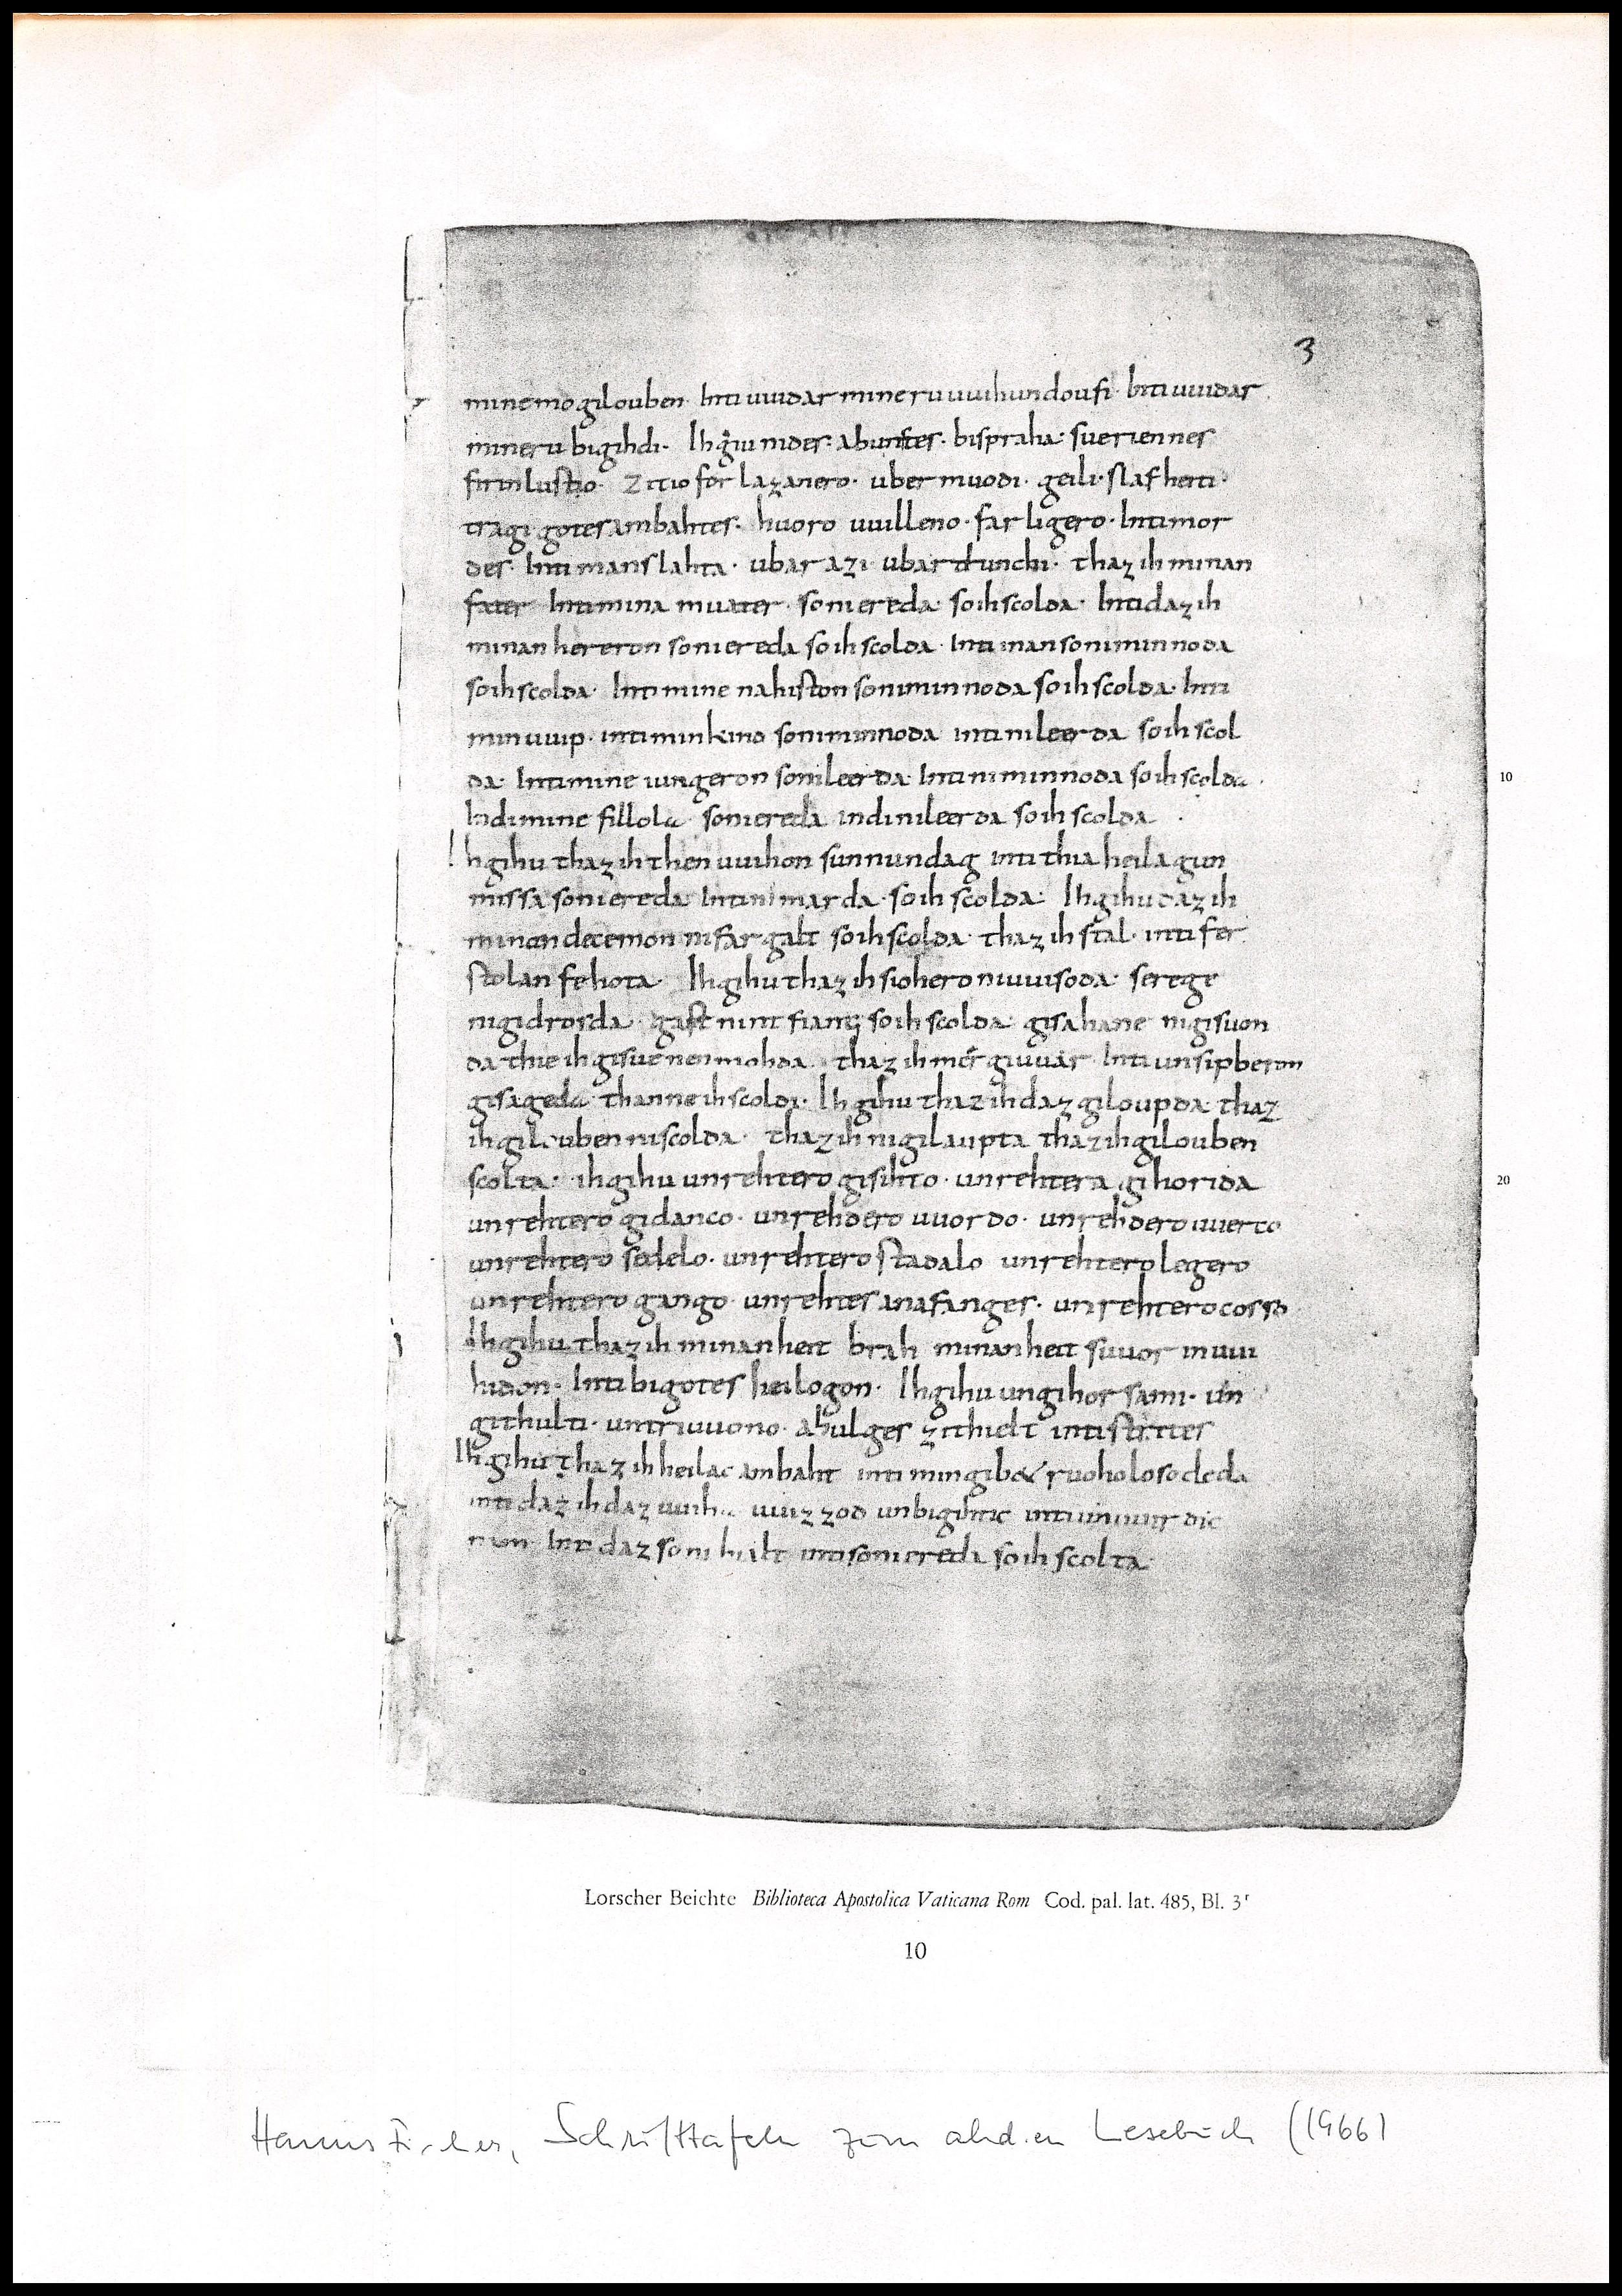 3
minemo gilouben. Inti uuidar mineru uuihun doufi. Inti uuidar
mineru bigihdi. Ih giu nides. abunstes. bispraha. sueriennes
firinlustio. zitio forlazanero. ubermuodi. geili. slafheiti.
tragi gotes ambahtes. huoro uuilleno. farligero. Inti mor
des. Inti manslahta. ubarazi. ubardrunchi. thaz ih minan
fater Inti mina muater. so ni ereda so ih scolda. Inti daz ih
minan hereron so ni ereda so ih scolda. Inti inan so ni minnoda
so ih scolda. Inti mine nahiston so ni minnoda so ih scolda. Inti
min uuip. inti min kind so ni minnoda inti ni leerda so ih scol
da. Inti mine iungeron so ni leerda Inti ni minnoda so ih scolda.
Indi mine fillola so ni ereda indi ni leerda so ih scolda.
Ih gihu thaz ih then uuihon sunnundag inti thia heilagun
missa so ni ereda Inti ni marda. so ih scolda. Ih gihu daz ih
minan decemon ni fargalt so ih scolda. thaz ih stal. inti fer
stolan fehota. Ih gihu thaz ih siohero ni uuisoda. serege
ni gidrosda. gast ni intfiang so ih scolda. gisahane ni gisuon
da thie ih gisuenen mohda. thaz ih mer giuuar Inti unsipberon
gisageda thanne ih scoldi. Ih gihu thaz ih daz giloupda thaz
ih gilouben ni scolda. thaz ih ni gilaupta thaz ih gilouben
scolta. ih gihu unrehtero gisihto. unrehtera gihorida
unrehtero gidanco. unrehdero uuordo. unrehdero uuerco
unrehtero sedelo. unrehtero stadalo unrehtero legero
unrehtero gango. unrehtes anafanges. unrehtero cosso.
Ih gihu thaz ih minan heit brah minan heit suuor in uui
hidon. Inti bi gotes heilogon. Ih gihu ungihorsami. un
githulti. untriuuono. abulges zithielt inti strites
Ih gihu thaz ih heilac ambaht inti min gib& ruoholoso deda
inti daz ih daz uuiha uuizzod unbigihtic inti unuuirdic
nam Inti daz so ni hialt inti so ni ereda so ih scolta.
10
20
Lorscher Beichte Biblioteca Apostolica Vaticana Rom Cod. pal. lat. 485, Bl. 3r
10
Hanns Fischer, Schrifttafeln zum ahd.en Lesebuch (1966)